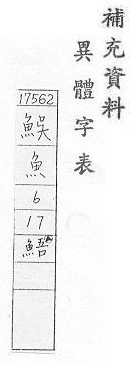 補充資料
異體字表
17562
鯃
魚
6
17